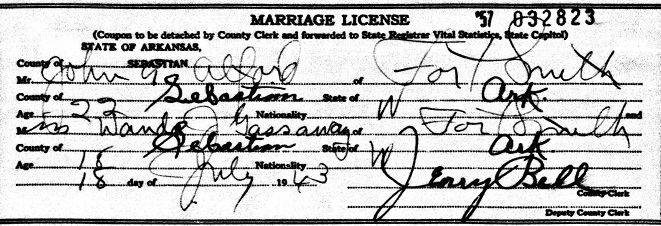 MARRIAGE LICENSE '57 032823
(Coupon to be detached by County Clerk and forwarded to State Registrar Vital Statistics, State Capitol)
STATE OF ARKANSAS,
County of SEBASTIAN
Mr. John Allard of Fort Smith
County of Sebastian State of Ark.
Age 23 Nationality W and
M iss Wanda J Gassaway of Fort Smith
County of Sebastian State of Ark
Age 18 Nationality W
18 day of July 1943 Jenry Bell
County Clerk
Deputy County Clerk